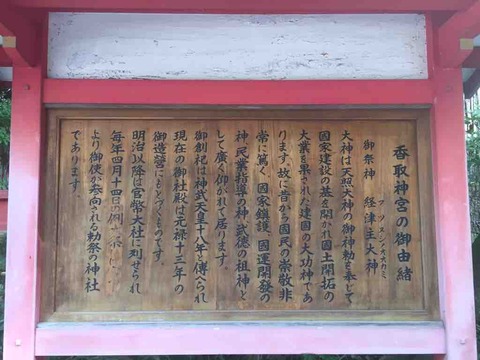 香取神宮の御由緒
フツヌシノオオカミ
御祭神 経津主大神
大神は天照大神の御神勅を奉じて
国家建設の基を開かれ国土開拓の
大業を果された建国の大功神であ
ります。故に昔から国民の崇敬非
常に篤く、国家鎮護、国運開發の
神、民業指導の神、武徳の祖神と
して廣く仰がれて居ります。
御創祀は神武天皇十八年と傳へられ
現在の御社殿は元禄十三年の
御造営にもとづくものです。
明治以降は官幣大社に列せられ
毎年四月十四日の例
より御使が参向される勅祭の神社
であります。